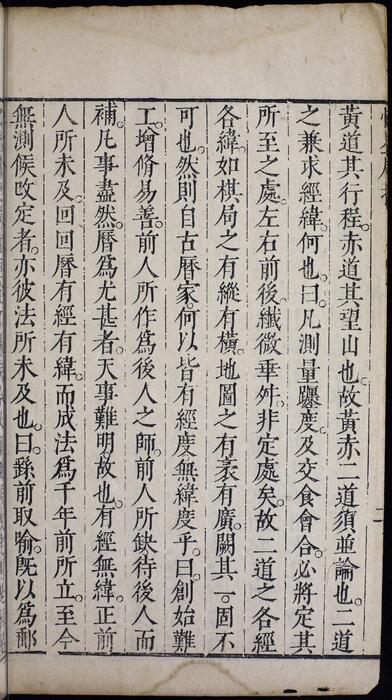 黃道其行程赤道其望山也故黃赤二道須並論也二道
之兼求經緯何也曰凡測量躔度及交食會合必將定其
所至之處左右前後纖微乖舛非定處矣故二道之各經
各緯如棋局之有縱有橫地圖之有袤有廣闕其一固不
可也然則自古曆家何以皆有經度無緯度乎曰創始難
工增脩易善前人所作為後人之師前人所缺待後人而
補凡事盡然曆為尤甚者天事難明故也有經無緯正前
人所未及回回曆有經有緯而成法為千年前所立至今
無測候改定者亦彼法所未及也曰繇前取喻既以為郵